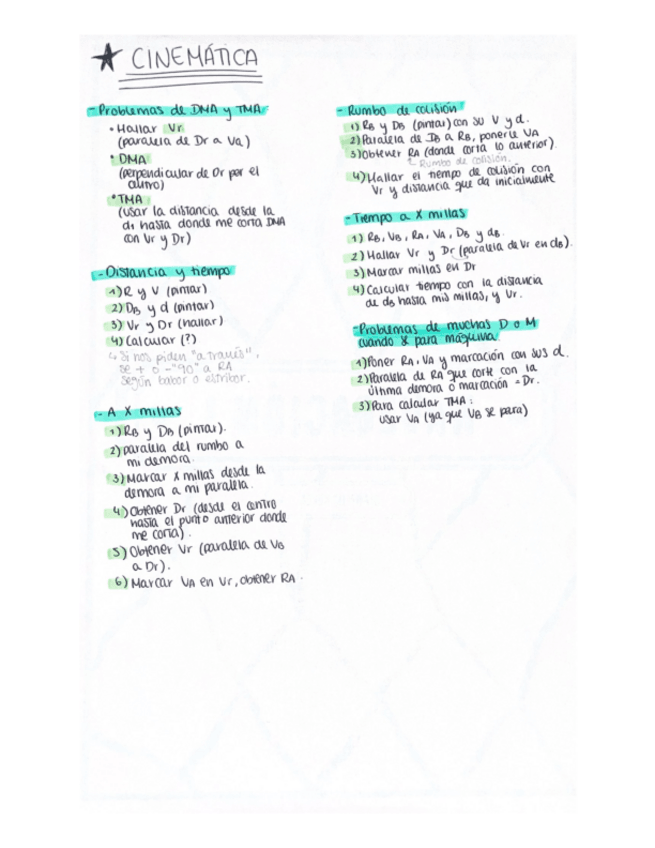 ★ CINEMÁTICA
- Problemas de DMA y TMA
• Hallar Vr
(paralela de Dr a Va)
• DMA
(perpendicular de Dr por el
centro)
• TMA
(usar la distancia desde la
d1 hasta donde me corta DMA
con Vr y Dr)
- Distancia y tiempo
1) R y V (pintar)
2) DB y d (pintar)
3) Vr y Dr (hallar)
4) Calcular (?)
↳ Si nos piden "a través",
se + o - "90" a RA
según babor o estribor.
- A X millas
1) RB y DB (pintar).
2) paralela del rumbo a
mi demora.
3) Marcar X millas desde la
demora a mi paralela.
4) Obtener Dr (desde el centro
hasta el punto anterior donde
me corta).
5) Obtener Vr (paralela de VB
a Dr).
6) Marcar VA en Vr, obtener RA.
- Rumbo de colisión
1) RB y DB (pintar) con su V y d.
2) Paralela de DB a RB, ponerle VA
3) Obtener RA (donde corta lo anterior).
↳ Rumbo de colisión.
4) Hallar el tiempo de colisión con
Vr y distancia que da inicialmente
- Tiempo a X millas
1) RB, VB, RA, VA, DB y dB.
2) Hallar Vr y Dr (paralela de Vr en dB).
3) Marcar millas en Dr
4) Calcular tiempo con la distancia
de dB hasta mis millas, y Vr.
- Problemas de muchas D o M
cuando se para máquina
1) Poner RA, VA y marcación con sus d.
2) Paralela de RA que corte con la
última demora o marcación = Dr.
3) Para calcular TMA:
usar VA (ya que VB se para)